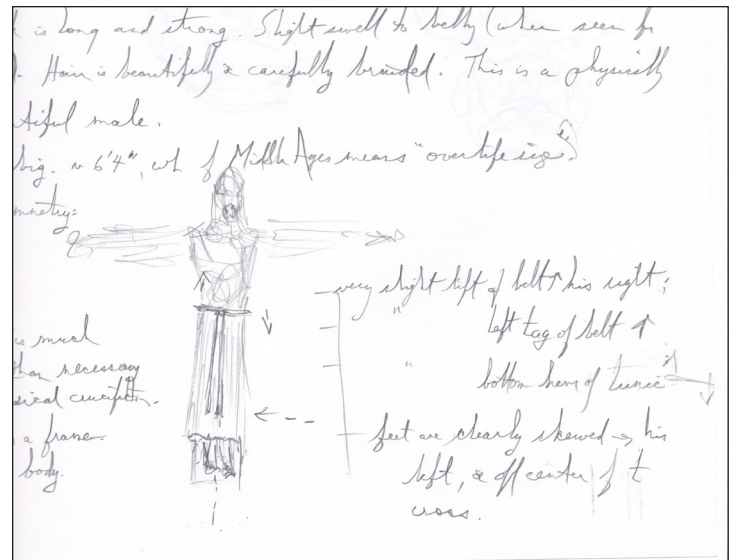 is long and strong. Slight swell to belly (when seen fr
Hair is beautifully & carefully braided. This is a physically
tiful male.
big. ~ 6'4", wh f Middle Ages means "over life size."
mmetry:
very slight lift of belt ↑ his right;
" left tag of belt ↑
" bottom hem of tunic
feet are clearly skewed → his
left, & off center of t
cross.
is much
than necessary
sical crucifixion.
a frame
body.